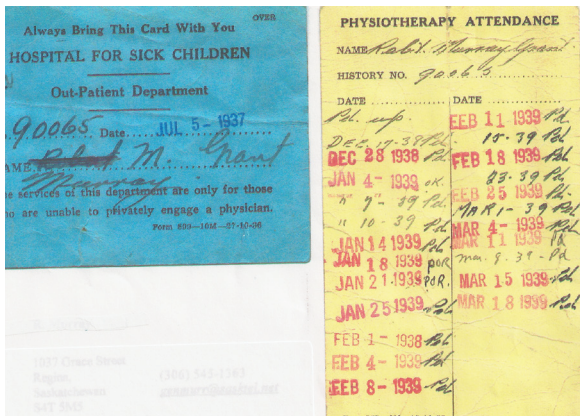 OVER
Always Bring This Card With You
HOSPITAL FOR SICK CHILDREN
Out-Patient Department
90065 Date JUL 5-1937
AME M. Grant
Murray
e services of this department are only for those
o are unable to privately engage a physician.
PHYSIOTHERAPY ATTENDANCE
NAME Robt. Murray Grant
HISTORY NO. 90065
DATE
Pd. up.
DEC 17-38 Pd.
DEC 28 1938 Pd.
JAN 4-1939 OK.
" 7"-39 Pd.
" 10-39 Pd.
JAN 14 1939 Pd.
JAN 18 1939 POR
JAN 21 1939 POR.
JAN 25 1939 Pd.
FEB 1-1938 Pd.
FEB 4-1939 Pd.
FEB 8-1939 Pd.
DATE
FEB 11 1939 Pd
15-39 Pd
FEB 18 1939 Pd.
23-39 Pd
FEB 25 1939 Pd
MAR 1-39 Pd
MAR 4-1939 Pd
MAR 11 1939 Pd
Mar. 8. 39-Pd
MAR 15 1939 Pd
MAR 18 1939 Pd.
Saskatchewan
S4T 5M5